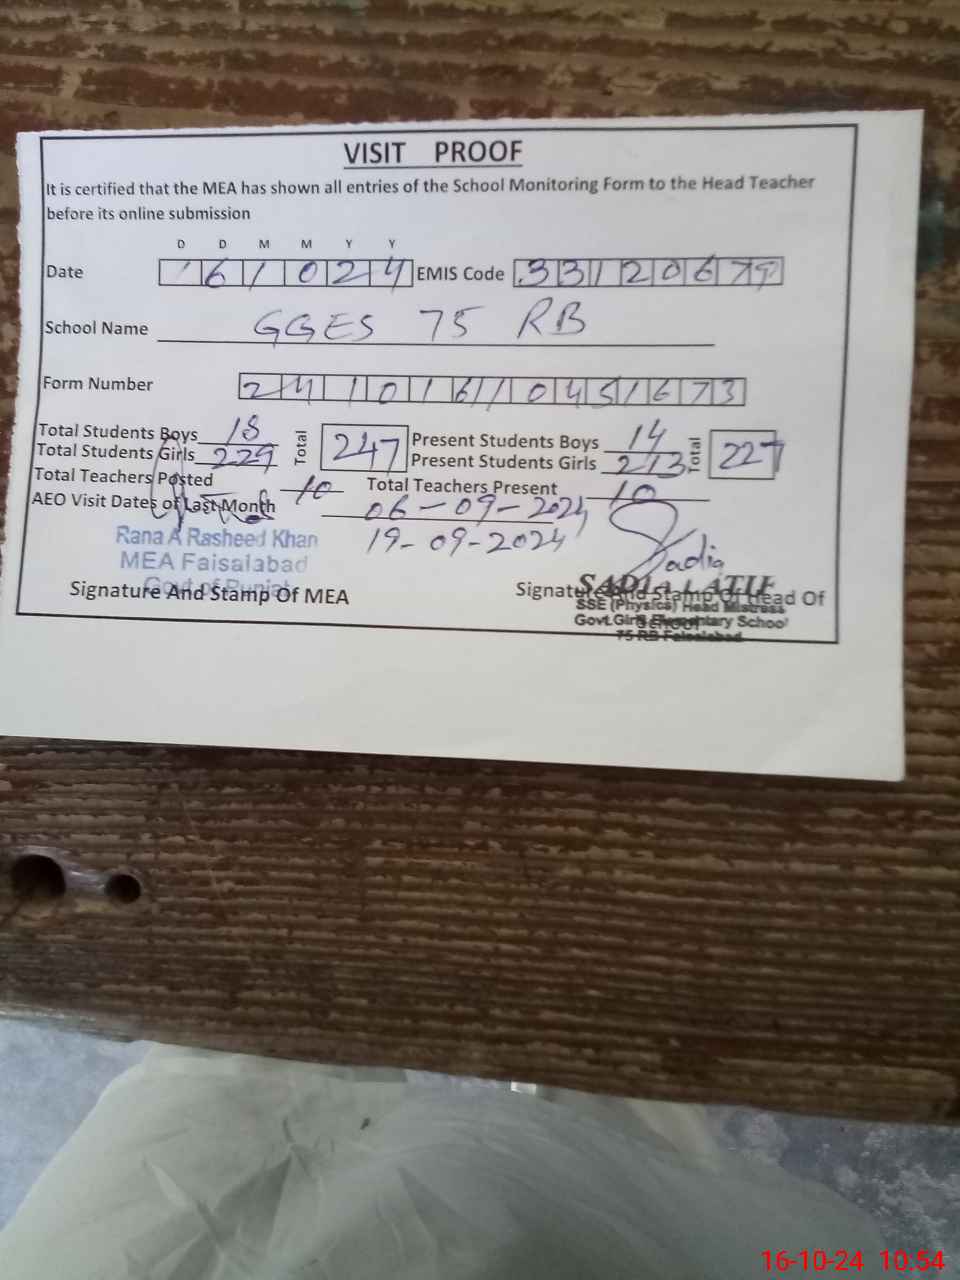 VISIT PROOF
It is certified that the MEA has shown all entries of the School Monitoring Form to the Head Teacher
before its online submission
D D M M Y Y
Date 161024 EMIS Code 33120679
School Name GGES 75 RB
Form Number 24101610451673
Total Students Boys 18 Total 247 Present Students Boys 14 Total 227
Total Students Girls 229 Present Students Girls 213
Total Teachers Posted 10 Total Teachers Present 10
AEO Visit Dates of Last Month 06-09-2024
19-09-2024
Sadia
Rana A Rasheed Khan
MEA Faisalabad
Govt of Punjab
Signature And Stamp Of MEA
Signature And Stamp Of Head Of
School
SADIA LATIF
SSE (Physics) Head Mistress
Govt. Girls Elementary School
75 RB Faisalabad
16-10-24 10:54